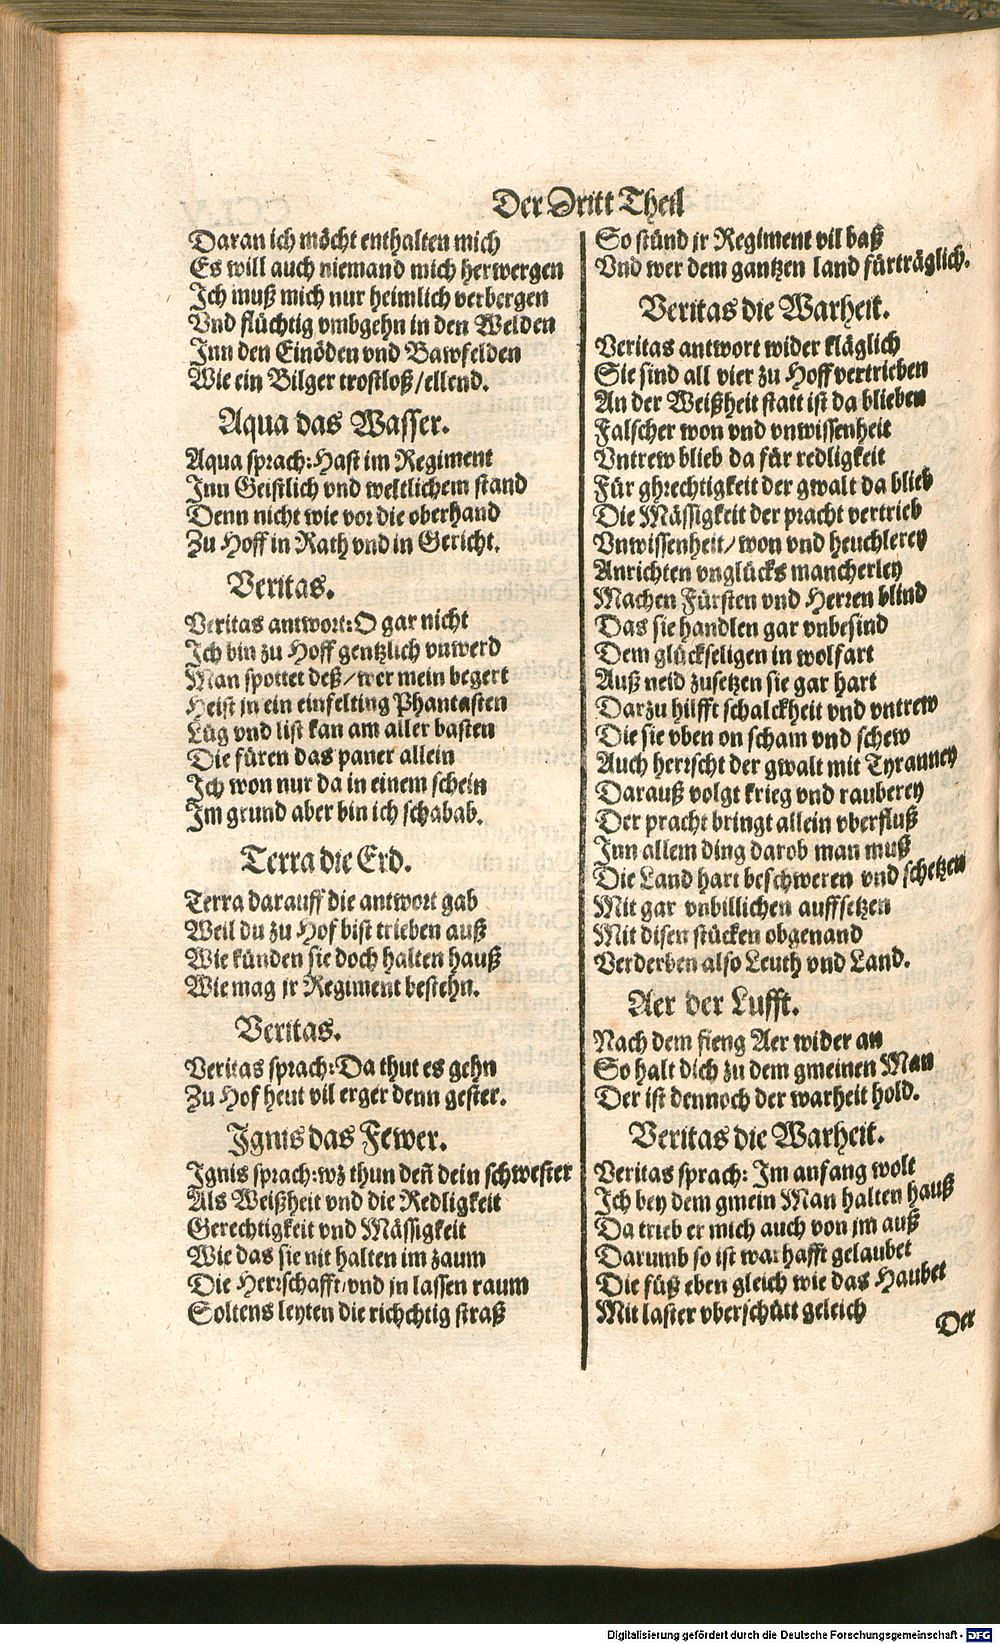 Der Dritt Theil
Daran ich möcht enthalten mich
Es will auch niemand mich herwergen
Ich muß mich nur heimlich verbergen
Vnd flüchtig vmbgehn in den Welden
Inn den Einöden vnd Bawfelden
Wie ein Bilger trostloß/ellend.
Aqua das Wasser.
Aqua sprach: Hast im Regiment
Inn Geistlich vnd weltlichem stand
Denn nicht wie vor die oberhand
Zu Hoff in Rath vnd in Gericht.
Veritas.
Veritas antwort: O gar nicht
Ich bin zu Hoff gentzlich vnwerd
Man spottet deß/wer mein begert
Heist in ein einfelting Phantasten
Lüg vnd list kan am aller basten
Die füren das paner allein
Ich won nur da in einem schein
Im grund aber bin ich schabab.
Terra die Erd.
Terra darauff die antwort gab
Weil du zu Hof bist trieben auß
Wie künden sie doch halten hauß
Wie mag jr Regiment bestehn.
Veritas.
Veritas sprach: Da thut es gehn
Zu Hof heut vil erger denn gester.
Ignis das Fewer.
Ignis sprach: wz thun deñ dein schwester
Als Weißheit vnd die Redligkeit
Gerechtigkeit vnd Mässigkeit
Wie das sie nit halten im zaum
Die Herrschafft/vnd jn lassen raum
Soltens leyten die richchtig straß
So stünd jr Regiment vil baß
Vnd wer dem gantzen land fürträglich.
Veritas die Warheit.
Veritas antwort wider kläglich
Sie sind all vier zu Hoff vertrieben
An der Weißheit statt ist da blieben
Falscher won vnd vnwissenheit
Vntrew blieb da für redligkeit
Für ghrechtigkeit der gwalt da blieb
Die Mässigkeit der pracht vertrieb
Vnwissenheit/won vnd heuchlerey
Anrichten vnglücks mancherley
Machen Fürsten vnd Herren blind
Das sie handlen gar vnbesind
Dem glückseligen in wolfart
Auß neid zusetzen sie gar hart
Darzu hilfft schalckheit vnd vntrew
Die sie vben on scham vnd schew
Auch herrscht der gwalt mit Tyranney
Darauß volgt krieg vnd rauberey
Der pracht bringt allein vberfluß
Inn allem ding darob man muß
Die Land hart beschweren vnd schetzen
Mit gar vnbillichen auffsetzen
Mit disen stücken obgenand
Verderben also Leuth vnd Land.
Aer der Lufft.
Nach dem fieng Aer wider an
So halt dich zu dem gmeinen Man
Der ist dennoch der warheit hold.
Veritas die Warheit.
Veritas sprach: Im anfang wolt
Ich bey dem gmein Man halten hauß
Da trieb er mich auch von jm auß
Darumb so ist warhafft gelaubet
Die füß eben gleich wie das Haubet
Mit laster vberschütt geleich
Der
Digitalisierung gefördert durch die Deutsche Forschungsgemeinschaft - DFG